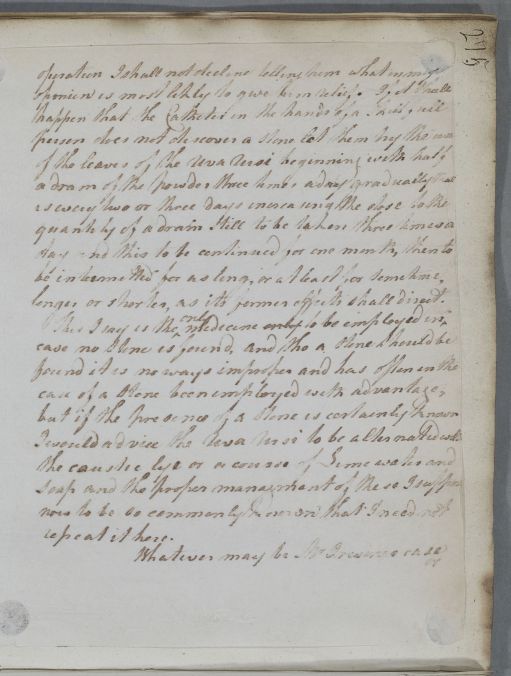 215
operation I shall not decline telling him what in my
opinion is most likely to give him relief. If it shall
happen that the Catheter in the hands of a Skillfull
person does not discover a stone let them try the use
of the leaves of the Uva Ursi beginning with half
a dram of the powder three times a day gradually that
is every two or three days increasing the dose to the
quantity of a dram still to be taken three times a
day and this to be continued for one month, then to
be intermitted for as long, or at least for some time,
longer or shorter, as its former effects shall direct.
This I say is the only medicine to be employed in
case no Stone is found, and tho a Stone should be
found it is no ways improper and has often in the
case of a Stone been employed with advantage,
but if the presence of a Stone is certainly known
I would advise the Uva Ursi to be alternated with
the caustic lye or a course of Lime water and
Soap and the proper management of these I suppose
now to be so commonly known that I need not
repeat it here.
Whatever may be Mr case
or